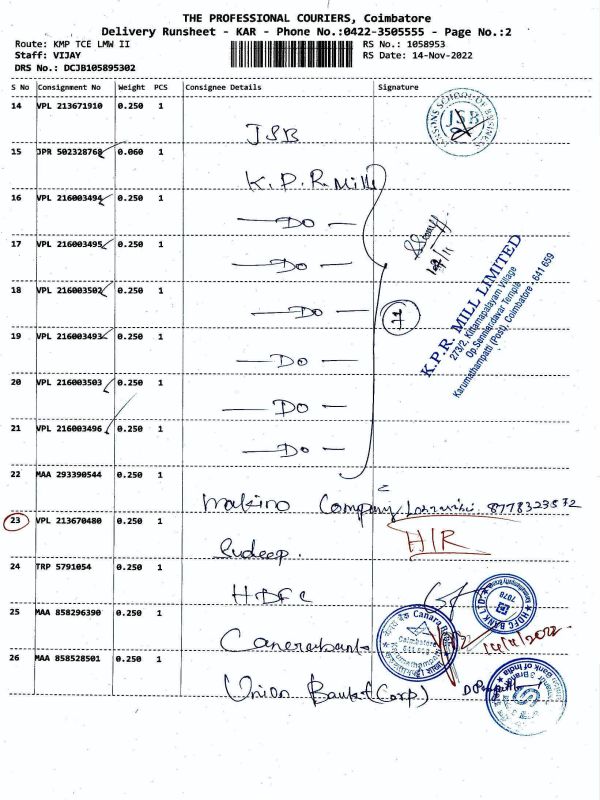 THE PROFESSIONAL COURIERS, Coimbatore
Delivery Runsheet - KAR - Phone No.:0422-3505555 - Page No.:2
Route: KMP TCE LMW II RS No.: 1058953
Staff: VIJAY RS Date: 14-Nov-2022
DRS No.: DCJB105895302
S No Consignment No Weight PCS Consignee Details Signature
14 VPL 213671910 0.250 1
JSB
JSB
15 JPR 502328768 0.060 1
K.P.R. Mill
16 VPL 216003494 0.250 1
— Do —
17 VPL 216003495 0.250 1
— Do —
18 VPL 216003502 0.250 1
— Do —
19 VPL 216003493 0.250 1
— Do —
20 VPL 216003503 0.250 1
— Do —
21 VPL 216003496 0.250 1
— Do —
K.P.R. MILL LIMITED
273/2, Kittampalayam Village
Op.Senniandavar Temple
Karumathampatti (Post), Coimbatore - 641 659
22 MAA 293390544 0.250 1
makino Company 8778323572
23 VPL 213670480 0.250 1
H/R
Sudeep.
24 TRP 5791054 0.250 1
HDFC
HDFC BANK LTD.
7078
25 MAA 858296390 0.250 1
Canerabank
Canara Bank
Coimbatore
641 659
14/11/2022
26 MAA 858528501 0.250 1
Union Bank (Corp)
Bank of India